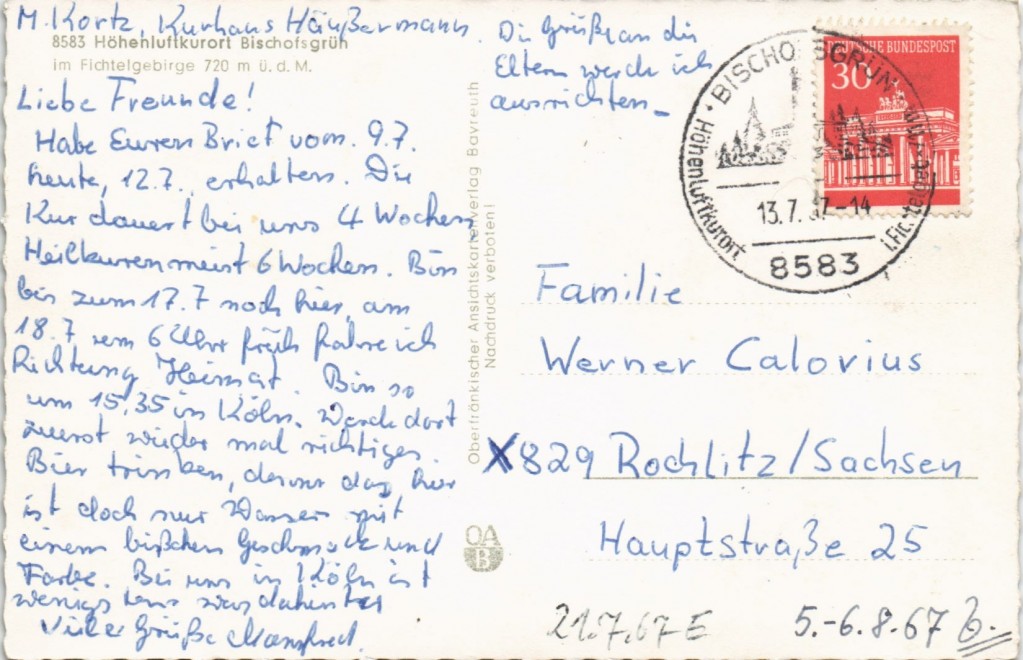 M. Kortz, Kurhaus Häußermann.
8583 Höhenluftkurort Bischofsgrün
im Fichtelgebirge 720 m ü. d. M.
Liebe Freunde!
Habe Euren Brief vom 9.7.
heute, 12.7. erhalten. Die
Kur dauert bei uns 4 Wochen
Heilkuren meist 6 Wochen. Bin
bis zum 17.7 noch hier, am
18.7 um 6 Uhr früh fahre ich
Richtung Heimat. Bin so
um 15,35 in Köln. Werde dort
zuerst wieder mal richtiges
Bier trinken, denn das hier
ist doch nur Wasser mit
einem bißchen Geschmack und
Farbe. Bei uns in Köln ist
wenigstens was dahinter
Viele Grüße Manfred.
Die Grüße an die
Eltern werde ich
ausrichten
Oberfränkischer Ansichtskartenverlag Bayreuth
Nachdruck verboten!
OA
B
DEUTSCHE BUNDESPOST
30
BISCHOFSGRÜN
Höhenluftkurort
i. Fichtelgeb.
13.7.67-14
8583
Familie
Werner Calovius
X829 Rochlitz/Sachsen
Hauptstraße 25
21.7.67 E
5.-6.8.67